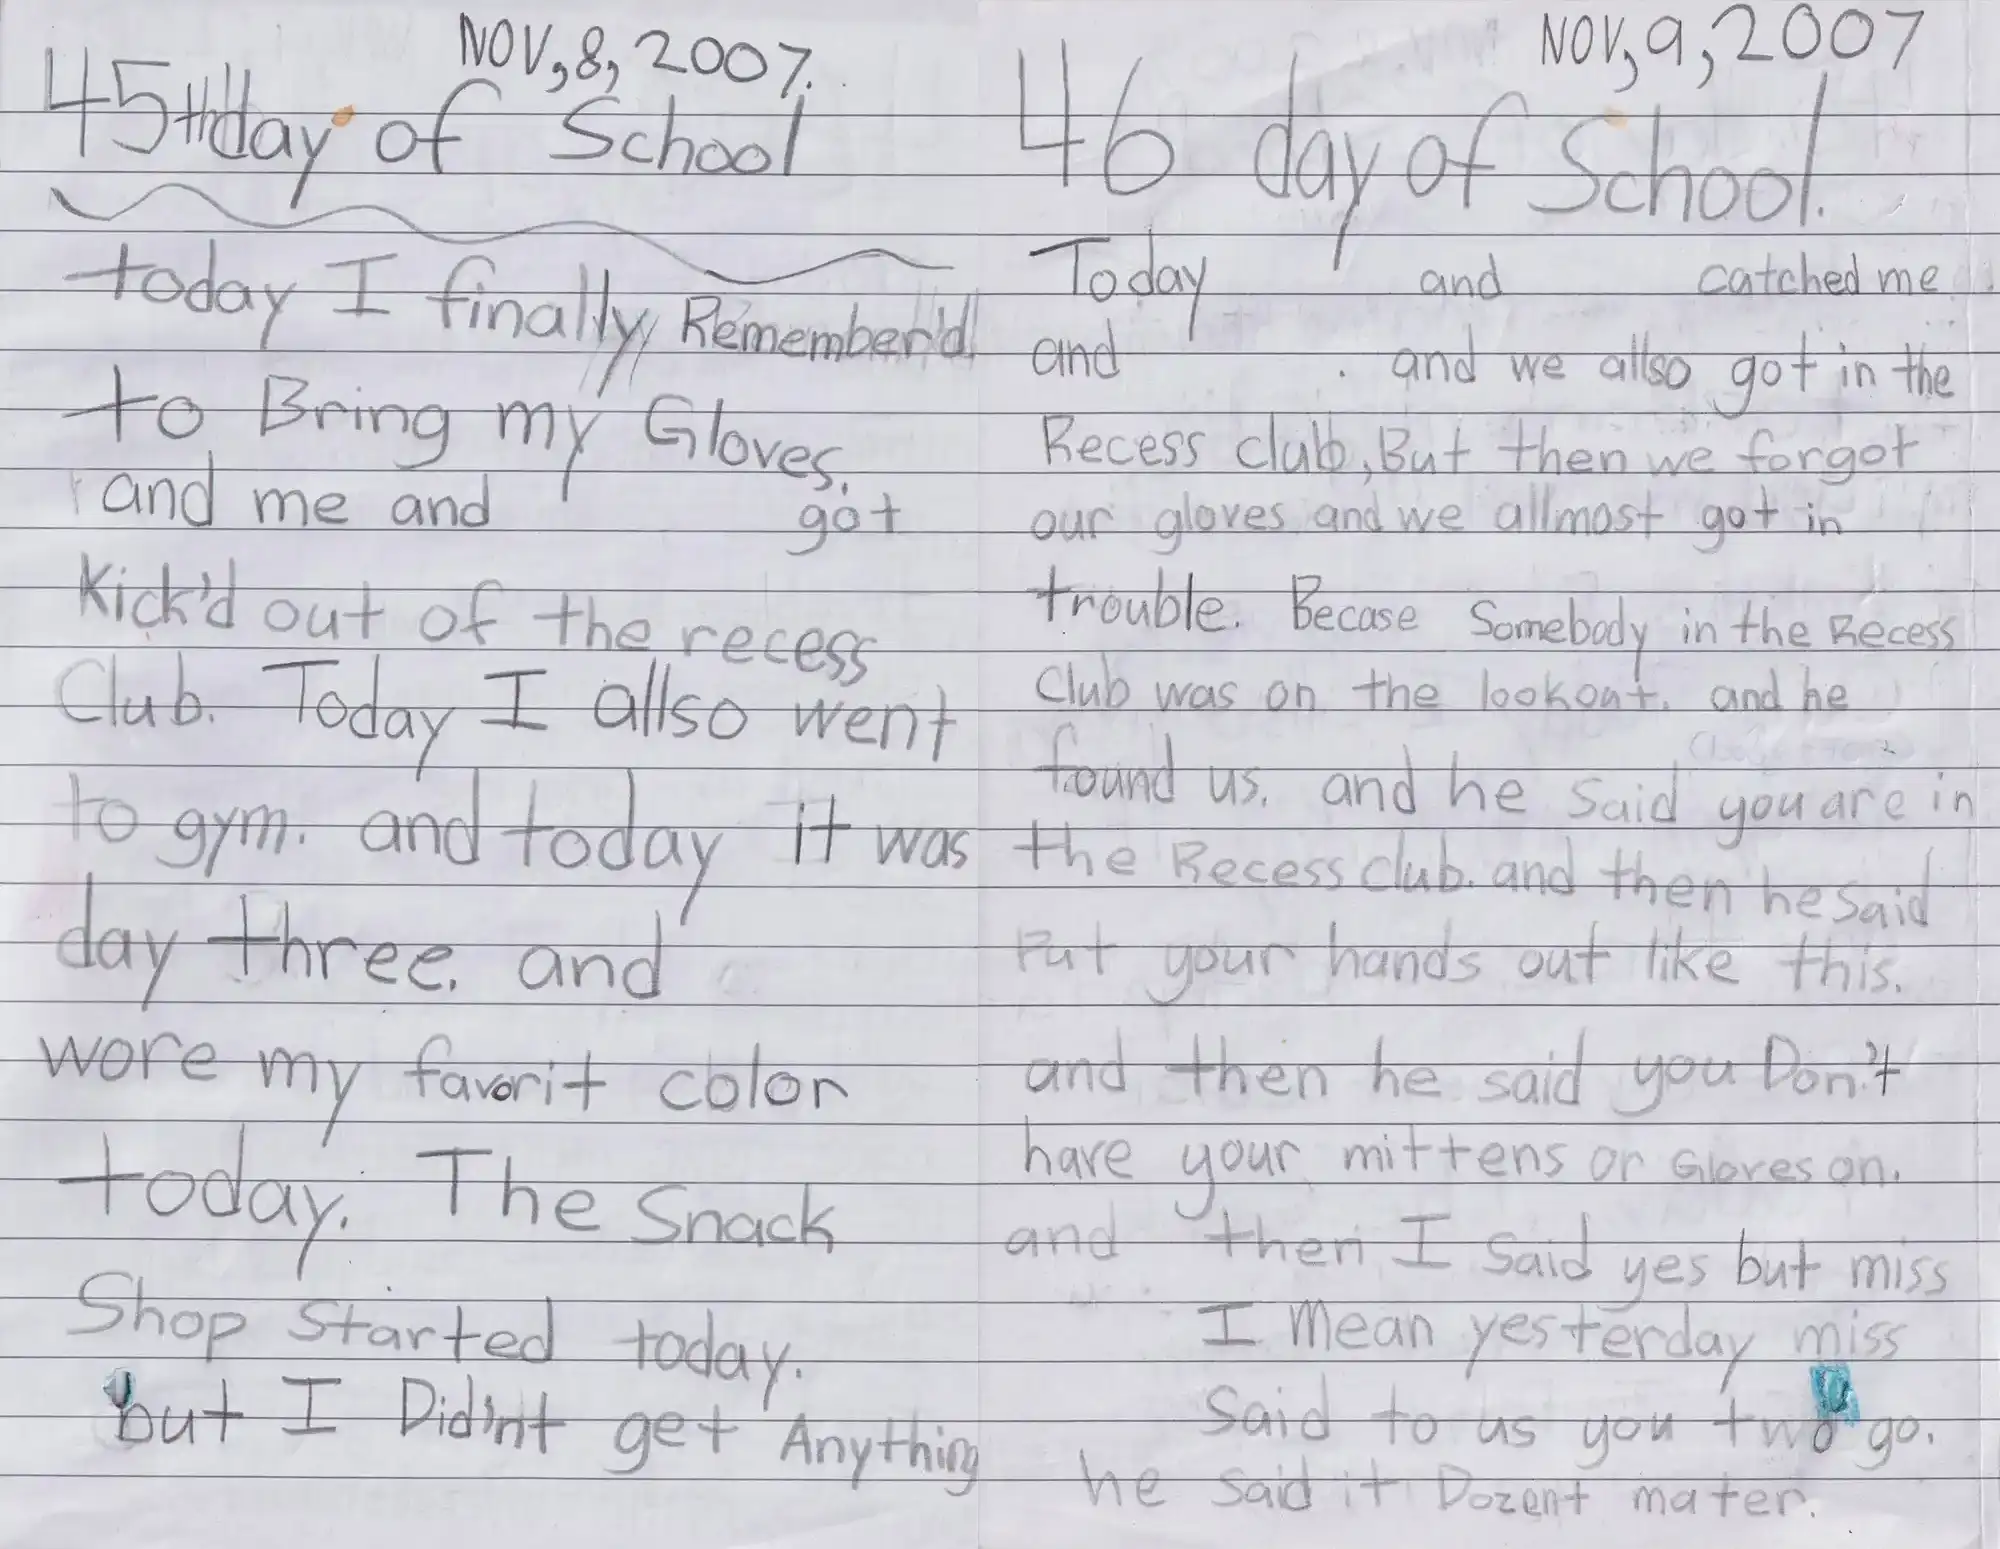 NOV, 8, 2007.
45th day of School
today I finally, Remember'd
to Bring my Gloves.
and me and got
Kick'd out of the recess
Club. Today I allso went
to gym. and today it was
day three. and
wore my favorit color
today. The Snack
Shop Started today.
but I Did'nt get Anything
NOV, 9, 2007
46 day of School.
Today and catched me
and . and we allso got in the
Recess club, But then we forgot
our gloves and we allmost got in
trouble. Becase Somebody in the Recess
Club was on the lookout. and he
found us. and he said you are in
the Recess club. and then he said
Put your hands out like this.
and then he said you Don't
have your mittens or Gloves on.
and then I said yes but miss
I mean yesterday miss
Said to us you two go.
he said it Dozent mater.